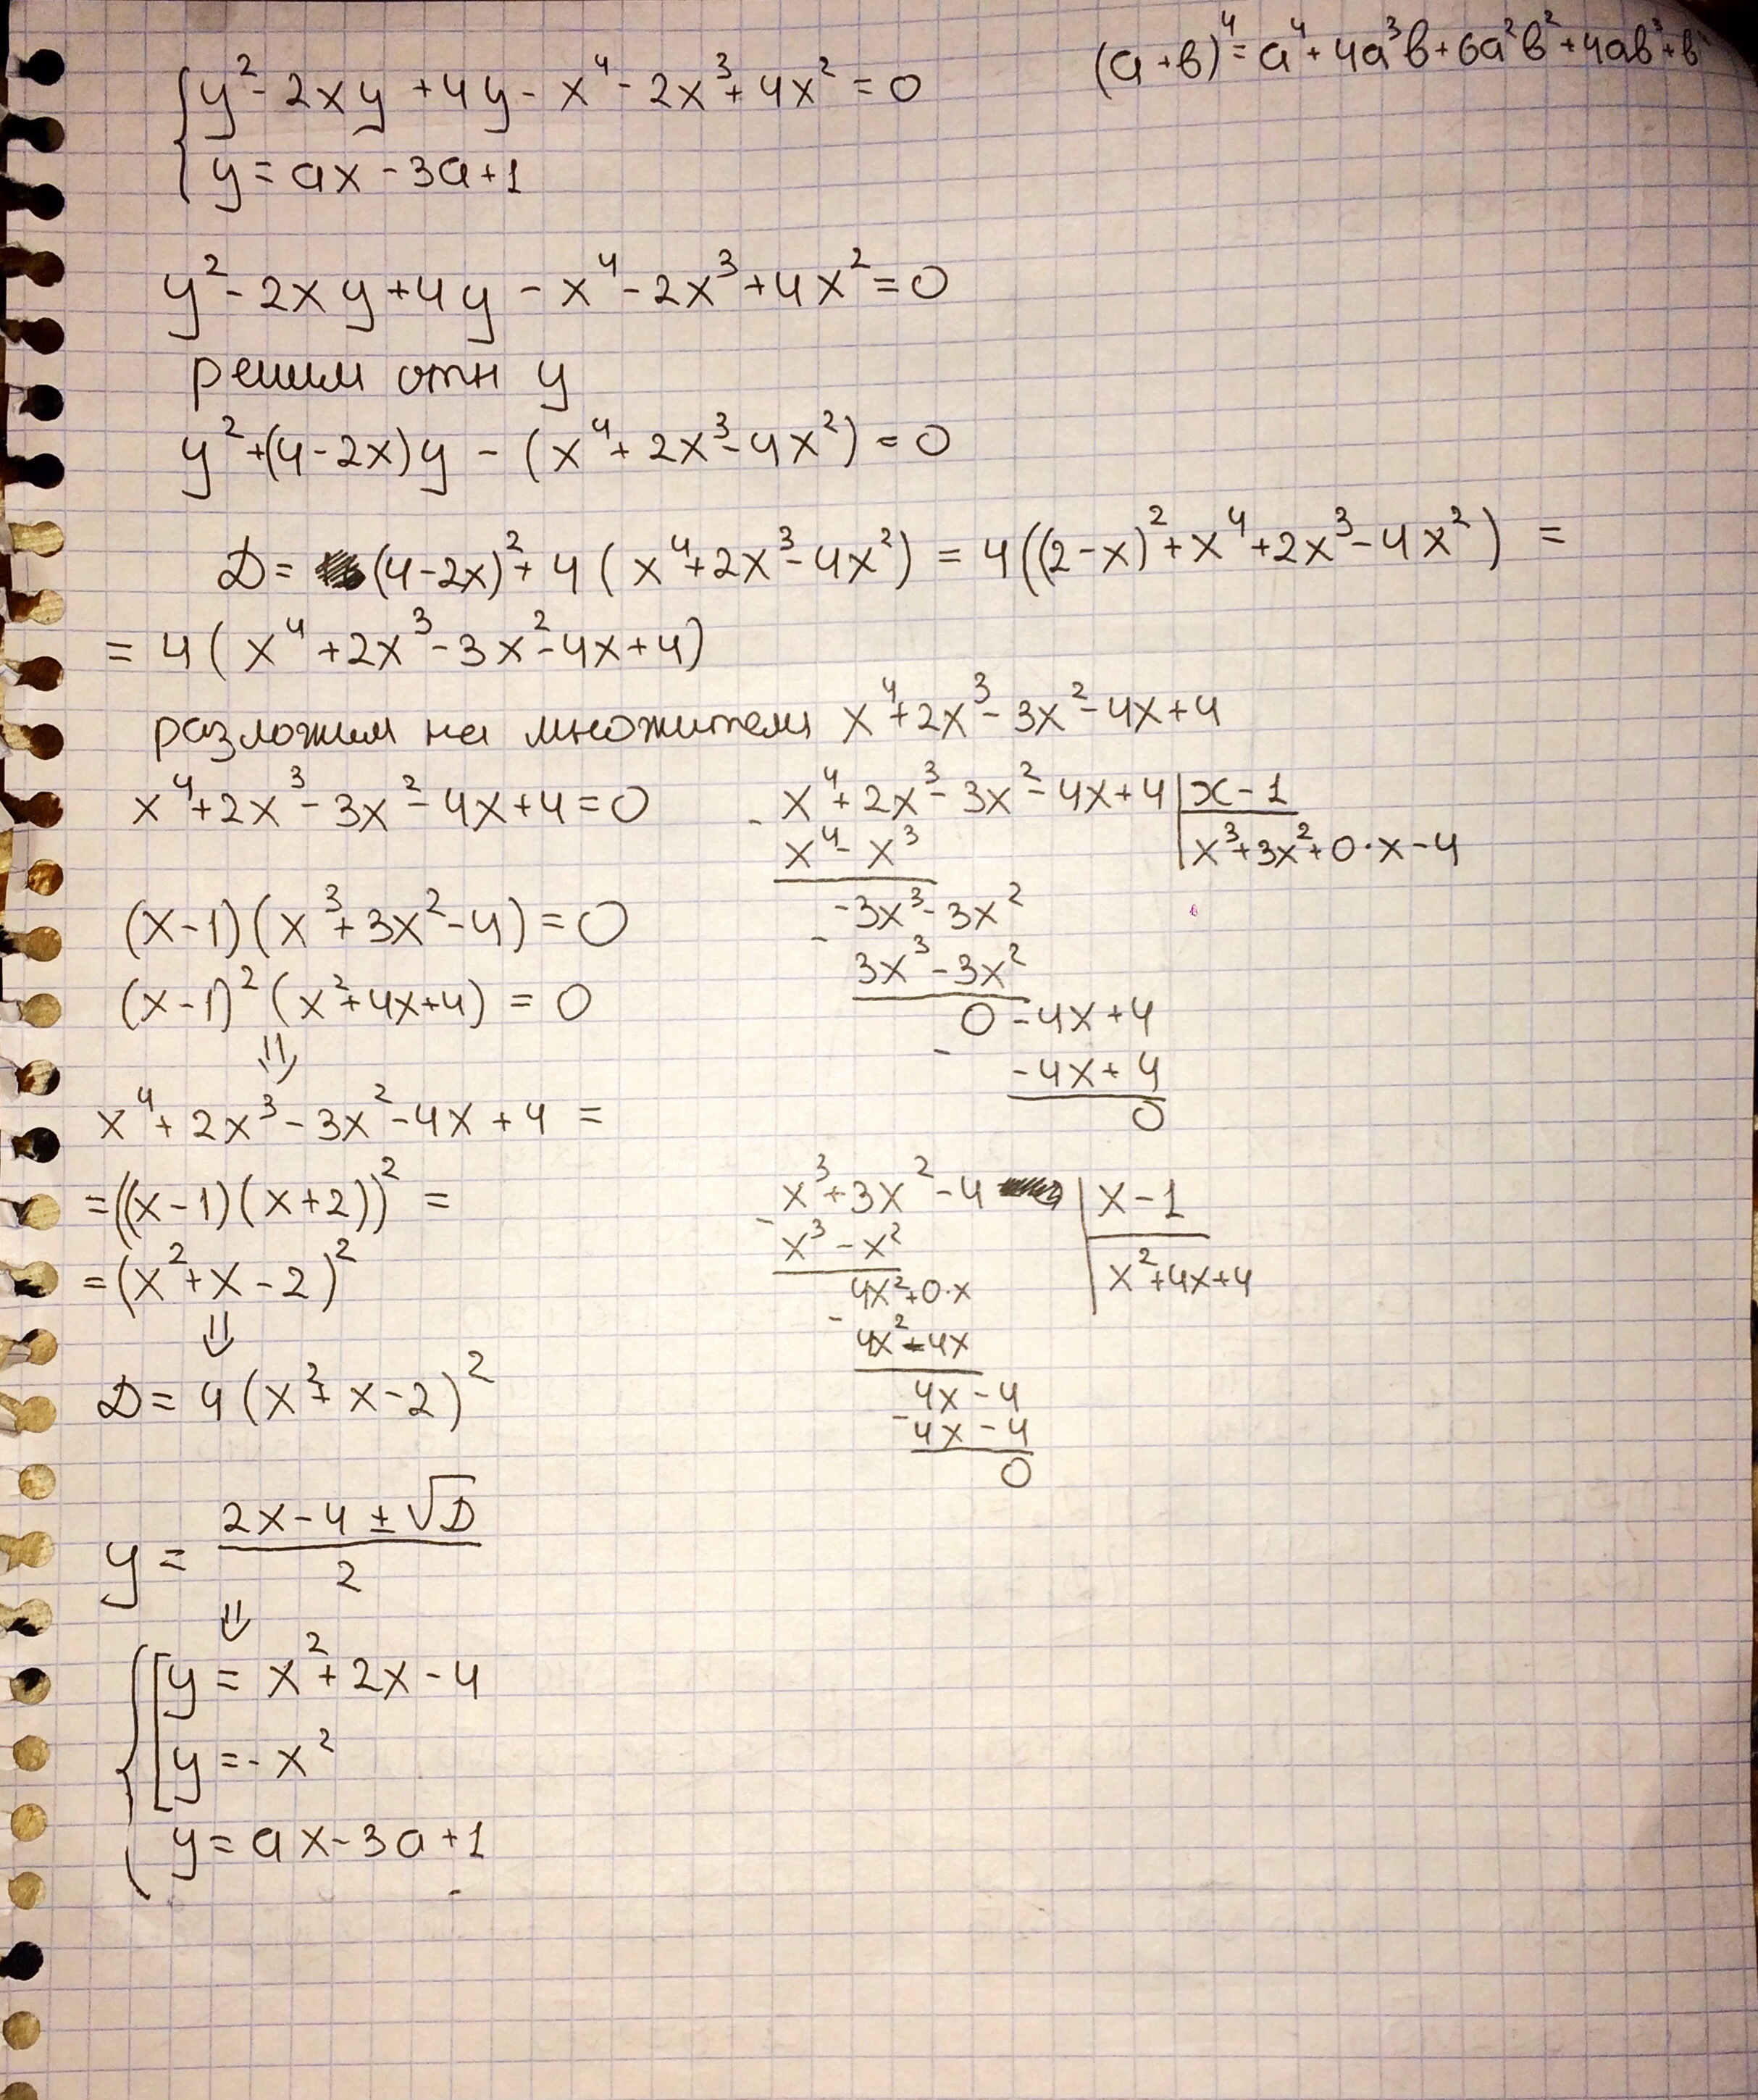 (a+b)⁴=a⁴+4a³b+6a²b²+4ab³+b⁴
{y²-2xy+4y-x⁴-2x³+4x²=0
{y=ax-3a+1
y²-2xy+4y-x⁴-2x³+4x²=0
решим отн y
y²+(4-2x)y-(x⁴+2x³-4x²)=0
D=(4-2x)²+4(x⁴+2x³-4x²)=4((2-x)²+x⁴+2x³-4x²)=
=4(x⁴+2x³-3x²-4x+4)
разложим на множители x⁴+2x³-3x²-4x+4
x⁴+2x³-3x²-4x+4=0
(x-1)(x³+3x²-4)=0
(x-1)²(x²+4x+4)=0
⇓
x⁴+2x³-3x²-4x+4=
=((x-1)(x+2))²=
=(x²+x-2)²
⇓
D=4(x²+x-2)²
y=(2x-4±√D)/2
⇓
{[y=x²+2x-4
[y=-x²
y=ax-3a+1
-x⁴+2x³-3x²-4x+4|x-1
x⁴-x³ |x³+3x²+0·x-4
-3x³-3x²
-3x³-3x²
0-4x+4
- -4x+4
0
-x³+3x²-4|x-1
x³-x² |x²+4x+4
4x²+0·x
-4x²-4x
4x-4
-4x-4
0